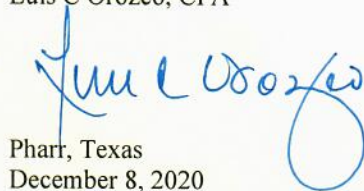 Luis C Orozco, CPA
Luis C Orozco
Pharr, Texas
December 8, 2020